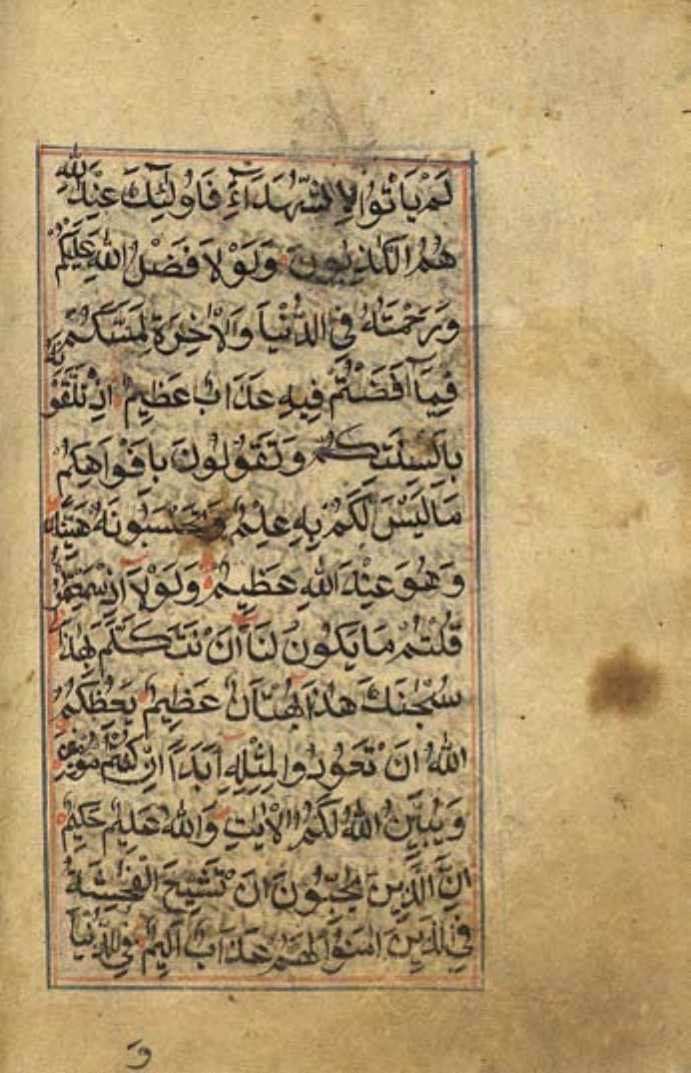 لَمْ يَأْتُوا بِالشُّهَدَآءِ فَاُولٰٓئِكَ عِنْدَ اللّٰهِ
هُمُ الْكٰذِبُونَ وَلَوْلَا فَضْلُ اللّٰهِ عَلَيْكُمْ
وَرَحْمَتُهُ فِي الدُّنْيَا وَالْاٰخِرَةِ لَمَسَّكُمْ
فِيمَآ اَفَضْتُمْ فِيهِ عَذَابٌ عَظِيمٌ اِذْ تَلَقَّوْنَهُ
بِاَلْسِنَتِكُمْ وَتَقُولُونَ بِاَفْوَاهِكُمْ
مَا لَيْسَ لَكُمْ بِهِ عِلْمٌ وَتَحْسَبُونَهُ هَيِّنًا
وَهُوَ عِنْدَ اللّٰهِ عَظِيمٌ وَلَوْلَآ اِذْ سَمِعْتُمُوهُ
قُلْتُمْ مَا يَكُونُ لَنَآ اَنْ نَتَكَلَّمَ بِهٰذَا
سُبْحٰنَكَ هٰذَا بُهْتَانٌ عَظِيمٌ يَعِظُكُمُ
اللّٰهُ اَنْ تَعُودُوا لِمِثْلِهِ اَبَدًا اِنْ كُنْتُمْ مُؤْمِنِينَ
وَيُبَيِّنُ اللّٰهُ لَكُمُ الْاٰيٰتِ وَاللّٰهُ عَلِيمٌ حَكِيمٌ
اِنَّ الَّذِينَ يُحِبُّونَ اَنْ تَشِيعَ الْفٰحِشَةُ
فِي الَّذِينَ اٰمَنُوا لَهُمْ عَذَابٌ اَلِيمٌ فِي الدُّنْيَا
وَ